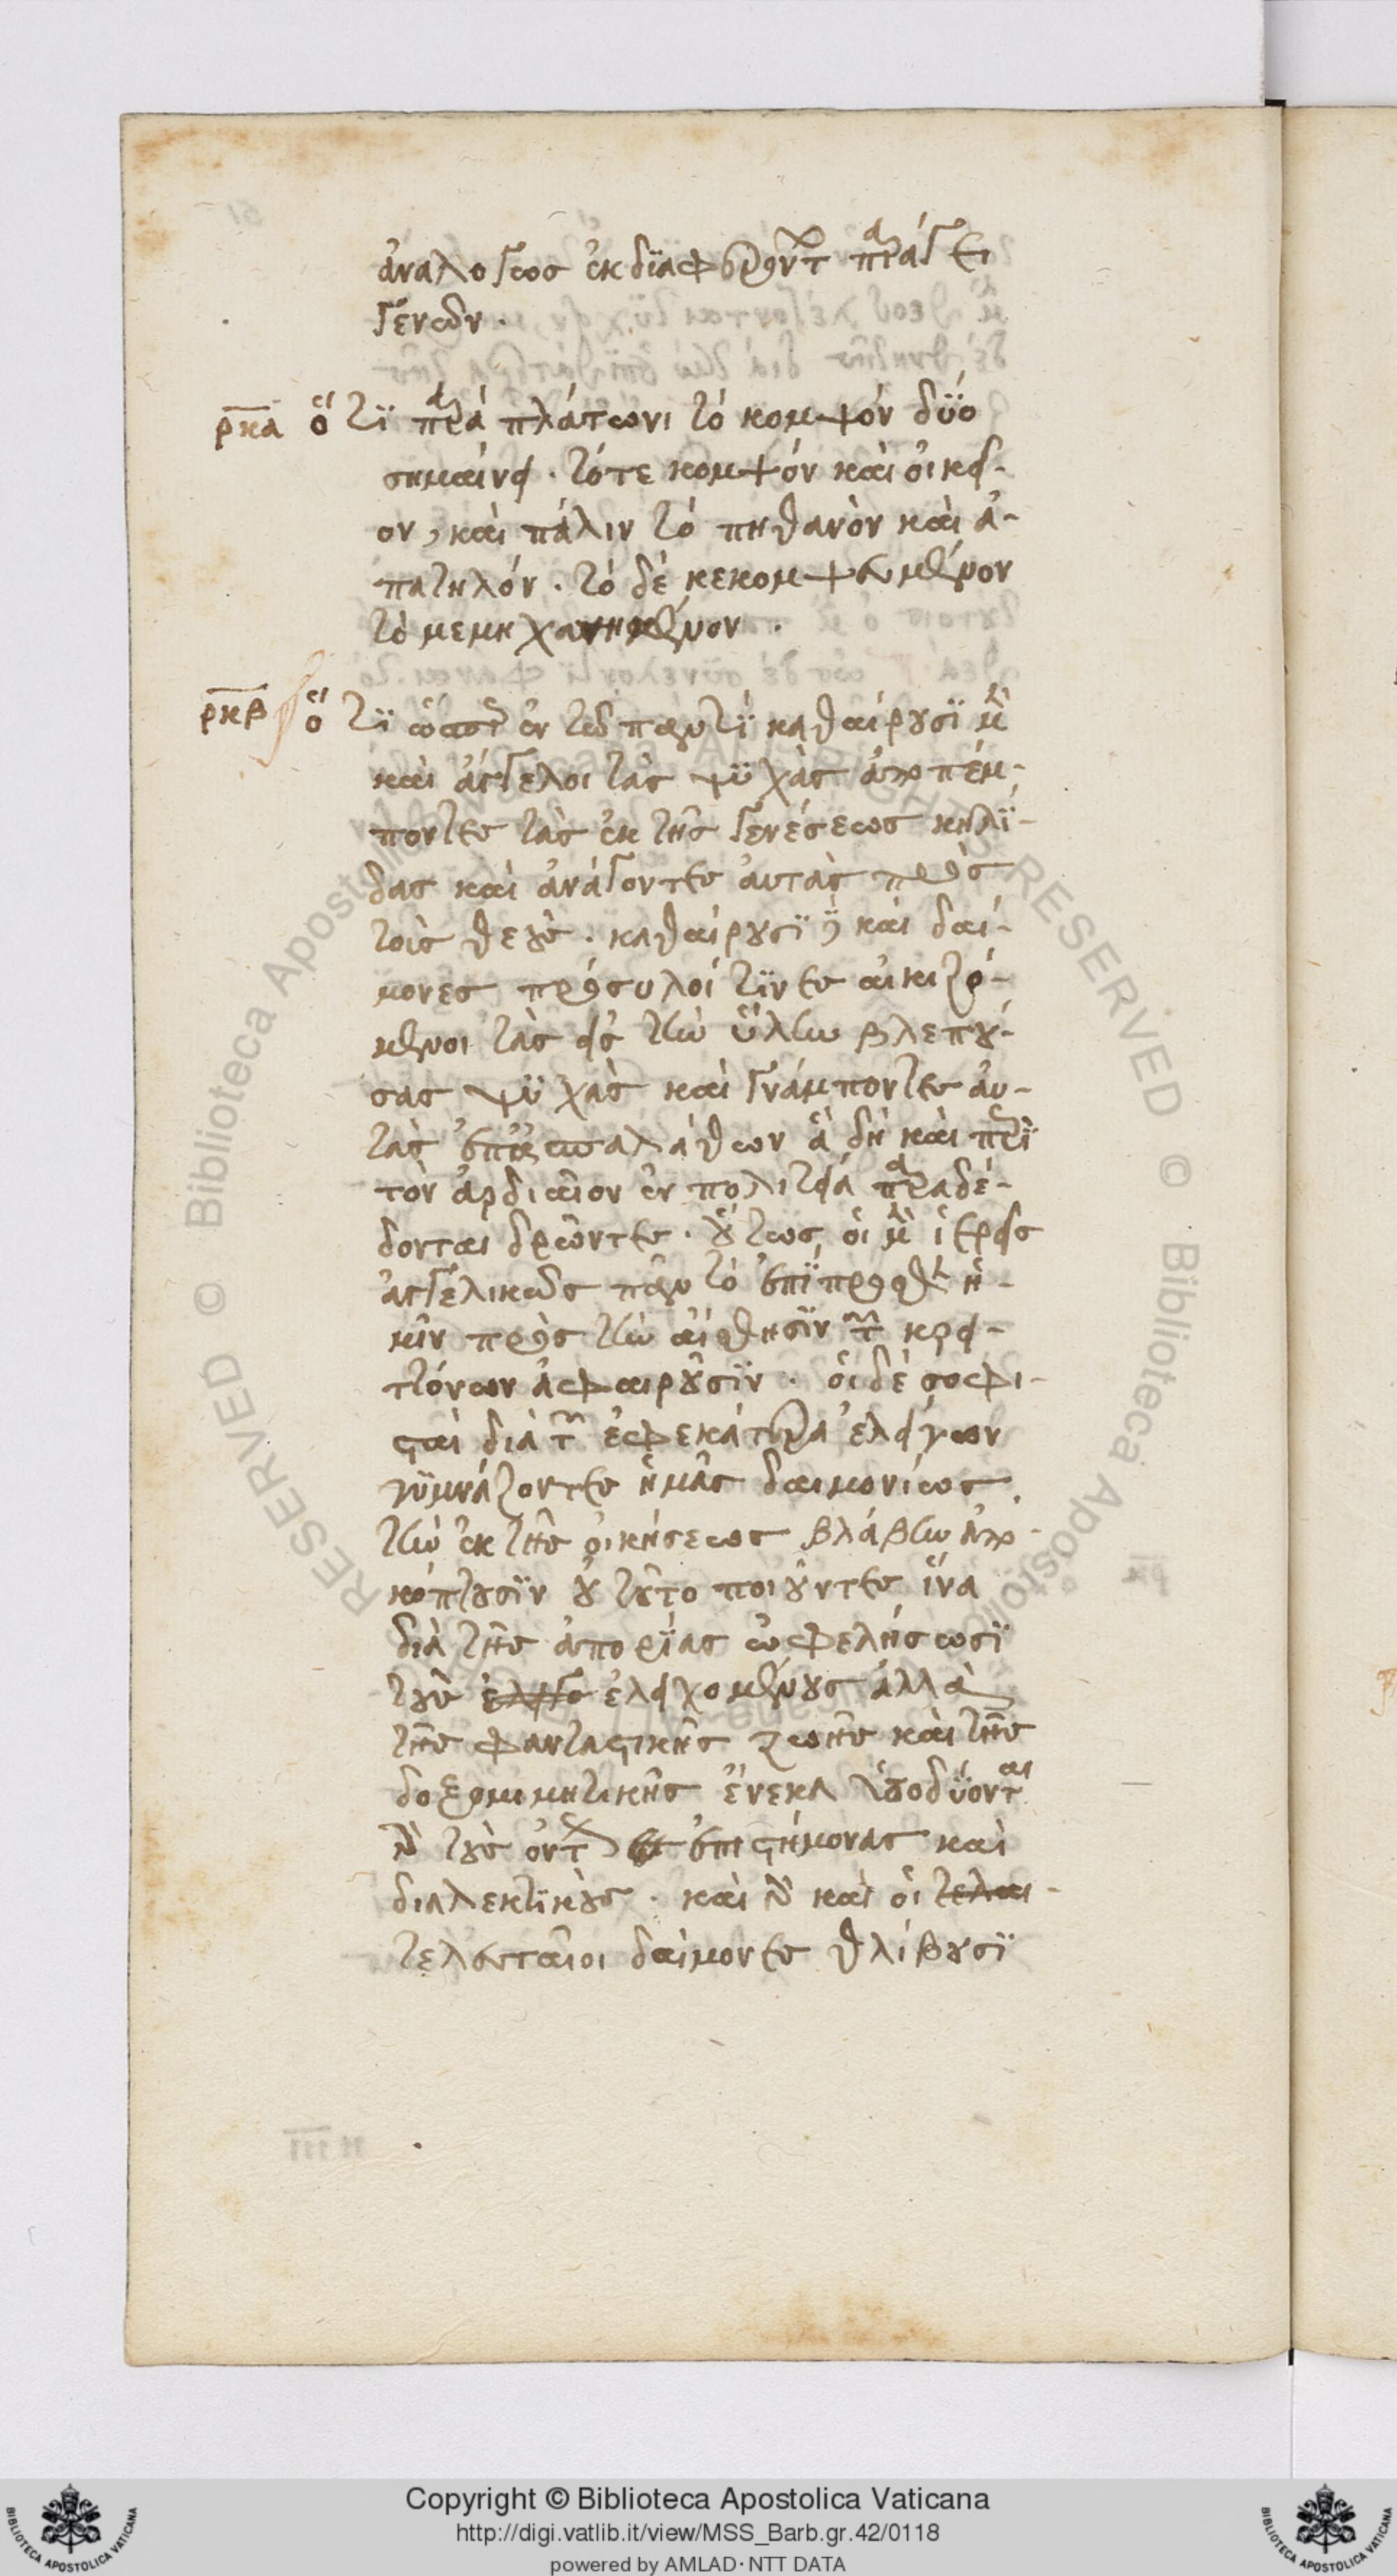 ἀναλόγως ἐκ διαφερόντ παράγει
γενῶν.
ρκα ὅτϊ παρὰ πλάτωνι τὸ κομψὸν δϋο
σημαίνει. τότε κομψὸν καὶ οἰκεῖ-
ον, καὶ πάλιν τὸ πηθανὸν καὶ ἀ-
πατηλόν. τὸ δὲ κεκομψευμένον
τὸ μεμηχανημένον.
ρκβ ὅτϊ ὥσπερ ἐν τῶ παντϊ καθαίρουσϊ μὲν
καὶ ἄγγελοι τὰς ψϋχὰς ἀποπέμ-
ποντες τὰς ἐκ τῆς γενέσεως κηλϊ-
δας καὶ ἀνάγοντες ἀυτὰς πρὸς
τοὺς θεούς. καθαίρουσϊ καὶ δαί-
μονες πρόσυλοί τϊνες αἰκιζό-
μενοι τὰς εἰς τὴν ὕλην βλεπού-
σας ψϋχὰς καὶ γνάμποντες ἀυ-
τὰς ἐπ ἀσπαλάθων ἃ δὴ καὶ περὶ
τὸν ἀρδιαῖον ἐν πολιτεία παραδέ-
δονται δρῶντες. οὕτως οἱ μὲν ἱερεῖς
ἀγγελικῶς πᾶν τὸ ἐπϊπροσθεν ἡ-
μῖν πρὸς τὴν αἴσθησϊν τῶν κρει-
ττόνων ἀφαιροῦσϊν. οἱ δὲ σοφι-
σταὶ διὰ τῶν ἐφεκάτερα ἐλέγχων
γϋμνάζοντες ἡμᾶς δαιμονίως
τὴν ἐκ τῆς οἰκήσεως βλάβην ἀπο-
κόπτουσϊν οὐ τοῦτο ποιοῦντες ἵνα
διὰ τῆς ἀπορϊας ὠφελήσωσϊ
τοὺς ἐλεγχομένους ἀλλὰ
τῆς φανταστικῆς ζωῆς καὶ τῆς
δοξομιμητικῆς ἕνεκα ὑποδϋονται
τοὺς ὄντως ἐπιστήμονας καὶ
διαλεκτϊκοὺς. καὶ καὶ οἱ τελαι-
τελευταῖοι δαίμονες θλίβουσϊ
Copyright © Biblioteca Apostolica Vaticana
http://digi.vatlib.it/view/MSS_Barb.gr.42/0118
powered by AMLAD·NTT DATA